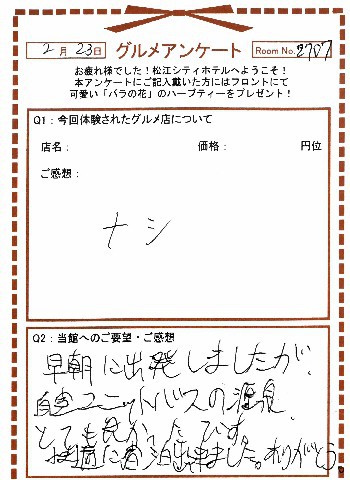 2月23日 グルメアンケート Room No.2707
お疲れ様でした！松江シティホテルへようこそ！
本アンケートにご記入戴いた方にはフロントにて
可愛い「バラの花」のハーブティーをプレゼント！
Q1：今回体験されたグルメ店について
店名： 価格： 円位
ご感想：
ナシ
Q2：当館へのご要望・ご感想
早朝に出発しましたが、
ユニットバスの温泉
とても良かったです。
快適に宿泊出来ました。ありがとう。